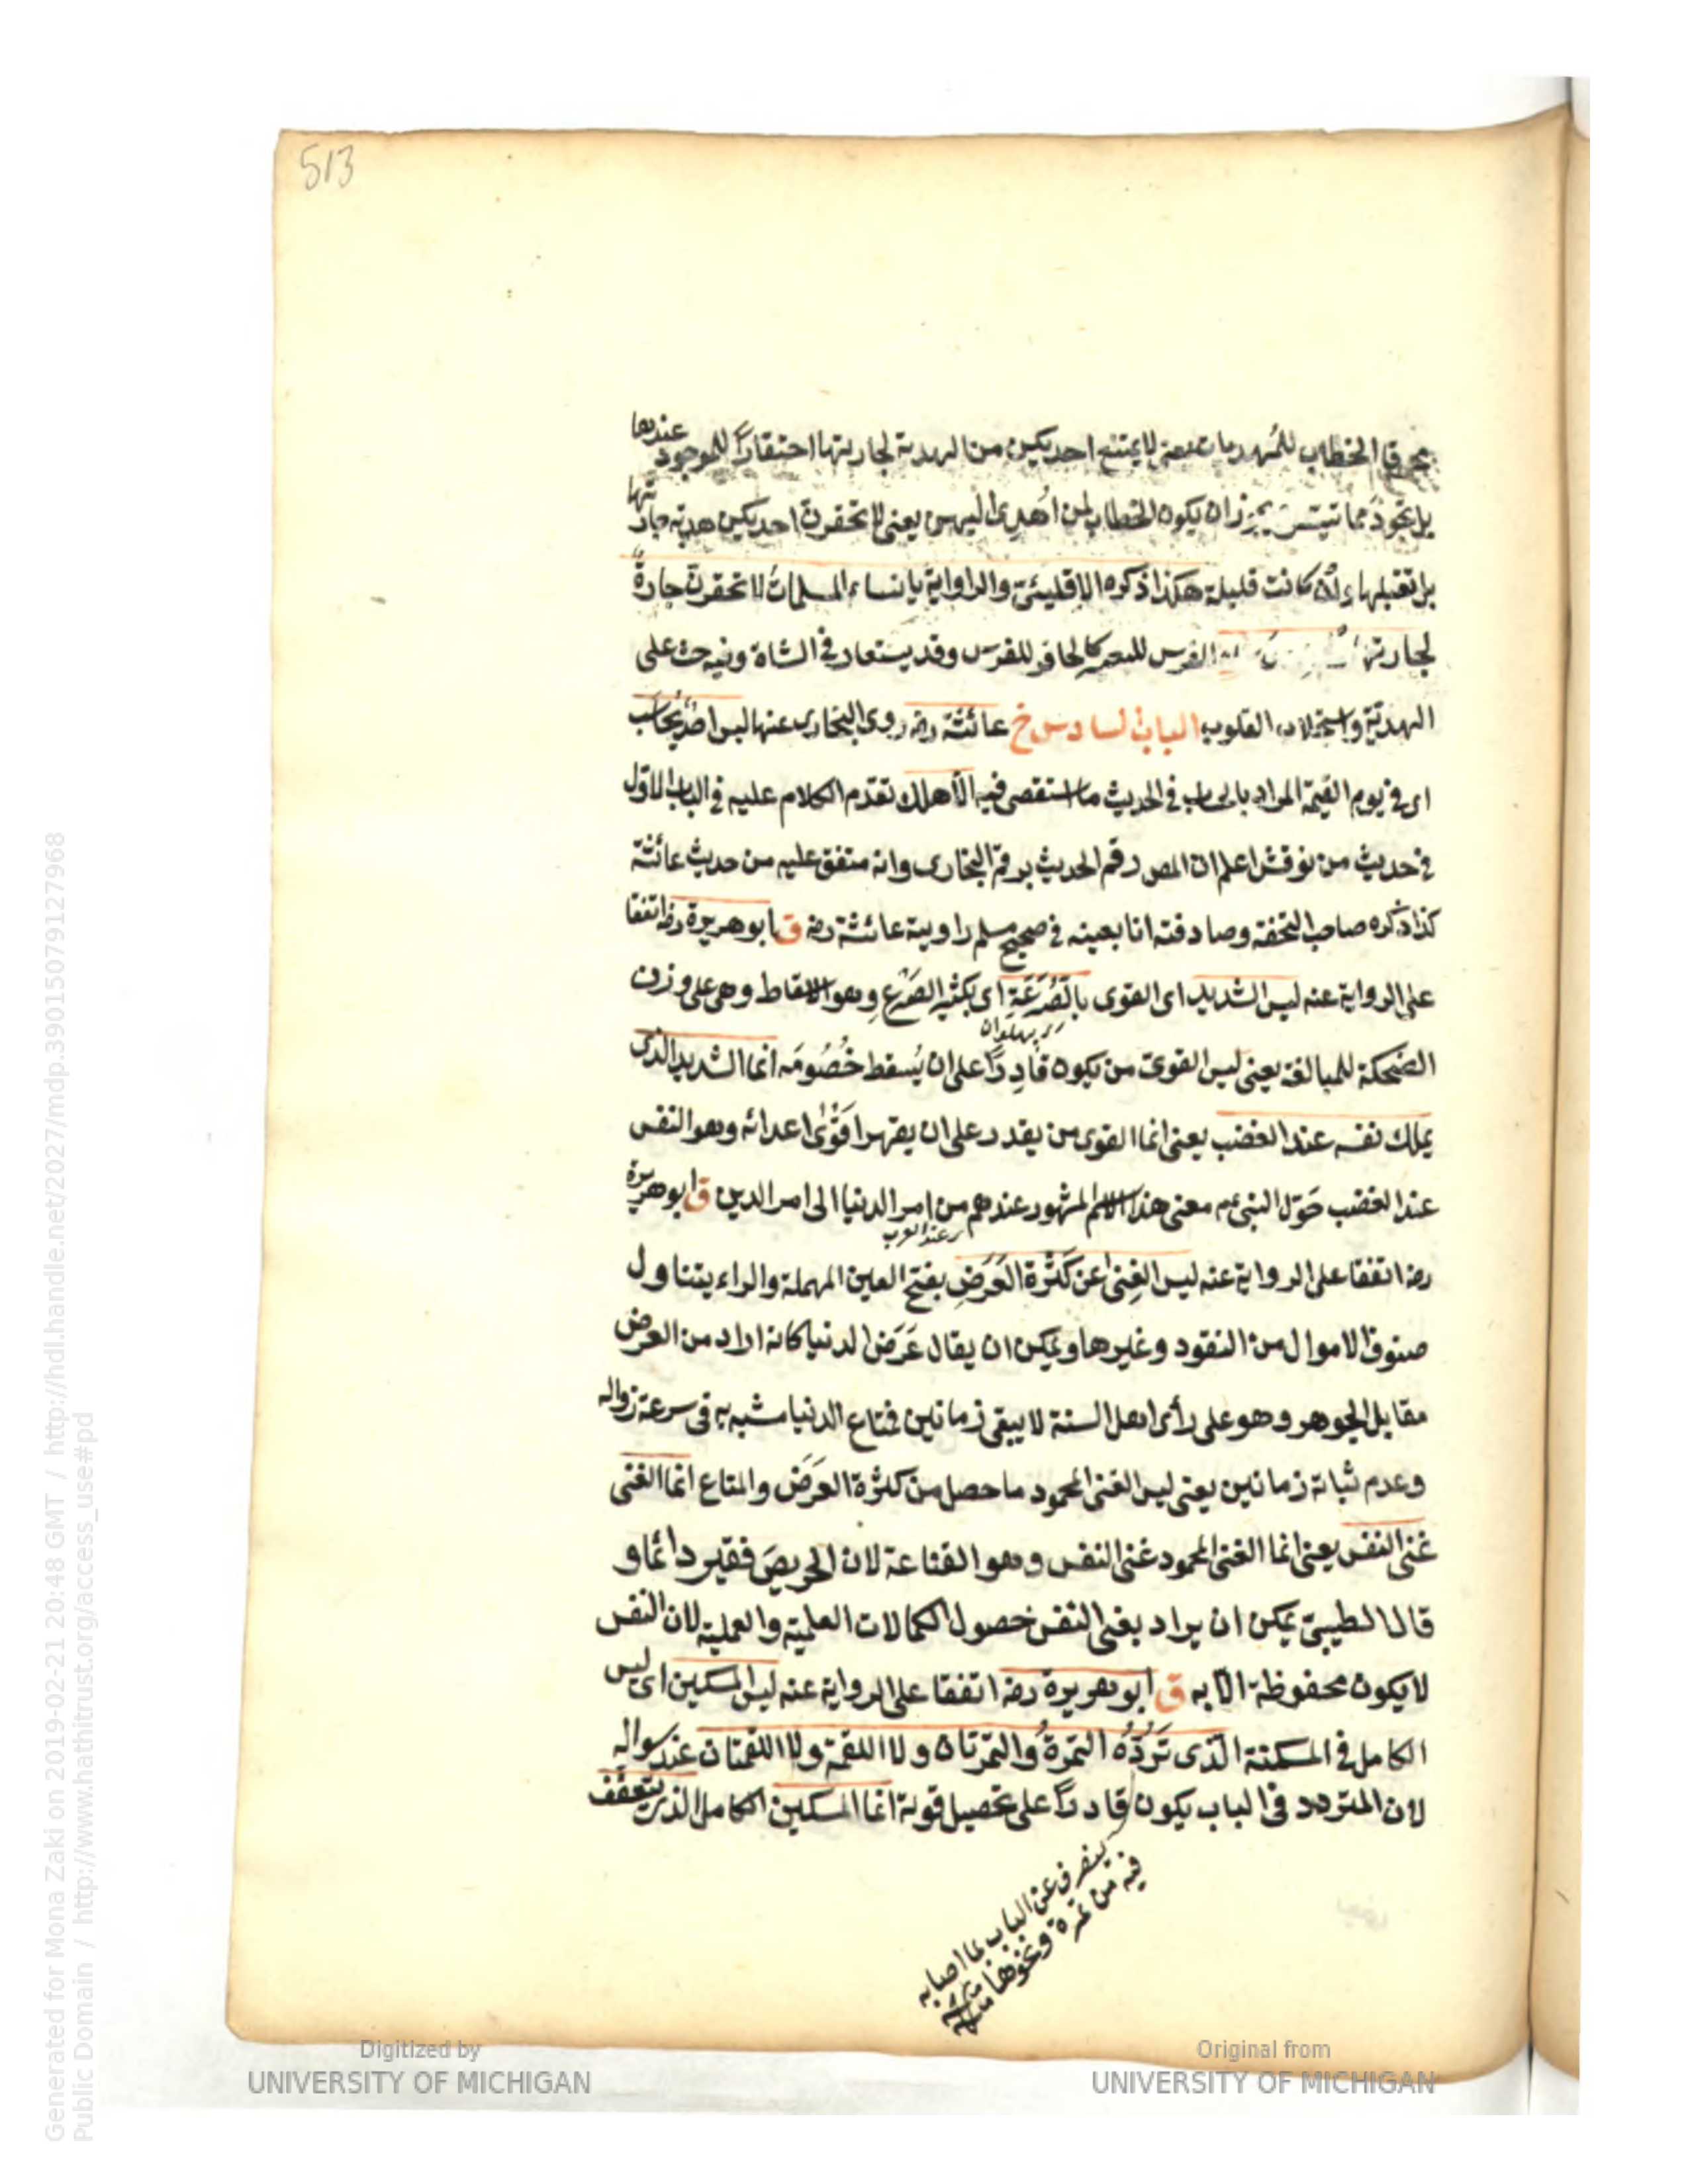 513
محرقا الخطاب للمهديات يعنى لا يمتنع احديكن من الهدية لجارتها احتقارًا للموجود عندها
بل تجود مما تيسر يجوز ان يكون الخطاب لمن اُهدى اليهن يعنى لا تحقرن احديكن هدية جارتها
بل تقبلها وان كانت قليلة هكذا ذكره الاقليشى والراواية يا نساء المسلمات لا تحقرن جارةٌ
لجارتها الفرس للبعير كالحافر للفرس وقد يستعار فى الشاة وفيه حث على
الهدية واستجلاب القلوب الباب السادس خ عائشة رضه روى البخارى عنها ليس احدٌ يحاسَب
اى فى يوم القيمة المراد بالحساب فى الحديث ما استقصى فيه الا هلك تقدم الكلام عليه فى الباب الاول
فى حديث من نوقش اعلم ان المص رقم الحديث برقم البخارى وانه متفق عليه من حديث عائشة
كذا ذكره صاحب التحفة وصادفته انا بعينه فى صحيح مسلم راويية عائشة رضه ق ابو هريرة رضه اتفقا
على الرواية عنه ليس الشديد اى القوى بالصُّرَعَةِ اى بكثير الصَّرْعِ وهو الاسقاط وهى على وزن
پهلوان
الضحكة للمبالغة يعنى ليس القوىّ من يكون قادِرًا على ان يُسقط خُصُومَه انما الشديد الذى
يملك نفسه عند الغضب يعنى انما القوى من يقدر على ان يقهر اقوٰى اعدائه وهو النفس
عند الغضب حَوّل النبىء م معنى هذا الاسم المشهور عندهم من امر الدنيا الى امر الدين ق ابو هريرة
عند العرب
رضه اتفقا على الرواية عنه ليس الغِنٰى عن كَثْرة العَرَضِ بفتح العين المهملة والراء يتناول
صنوف الاموال من النقود وغيرها ويمكن ان يقال عَرَضُ الدنيا كانه اراد من العرض
مقابل الجوهر وهو على رأى اهل السنة لا يبقى زمانين فمتاع الدنيا مشبه به فى سرعة زواله
وعدم ثباته زمانين يعنى ليس الغنى المحمود ما حصل من كثرة العرَض والمتاع انما الغنى
غنى النفس يعنى انما الغنى المحمود غنى النفس وهو القناعة لان الحريصَ فقير دائما و
قال الطيبىّ يمكن ان يراد بغنى النفس حصول الكمالات العلمية والعملية لان النفس
لا يكون محفوظة الا به ق ابو هريرة رضه اتفقا على الرواية عنه ليس المسكين اى ليس
الكامل فى المسكنة الّذى تَرُدُّه التمرةُ والتمرتان ولا اللقمة ولا اللقمتان عند سواله
لان المتردد فى الباب يكون قادرًا على تحصيل قوته انما المسكين الكامل الذى يتعفف
ينصرف عن الباب بما اصابه
فيه من تمرة ونحوها
Digitized by
UNIVERSITY OF MICHIGAN
Original from
UNIVERSITY OF MICHIGAN
Generated for Mona Zaki on 2019-02-21 20:48 GMT / http://hdl.handle.net/2027/mdp.39015079127968
Public Domain / http://www.hathitrust.org/access_use#pd